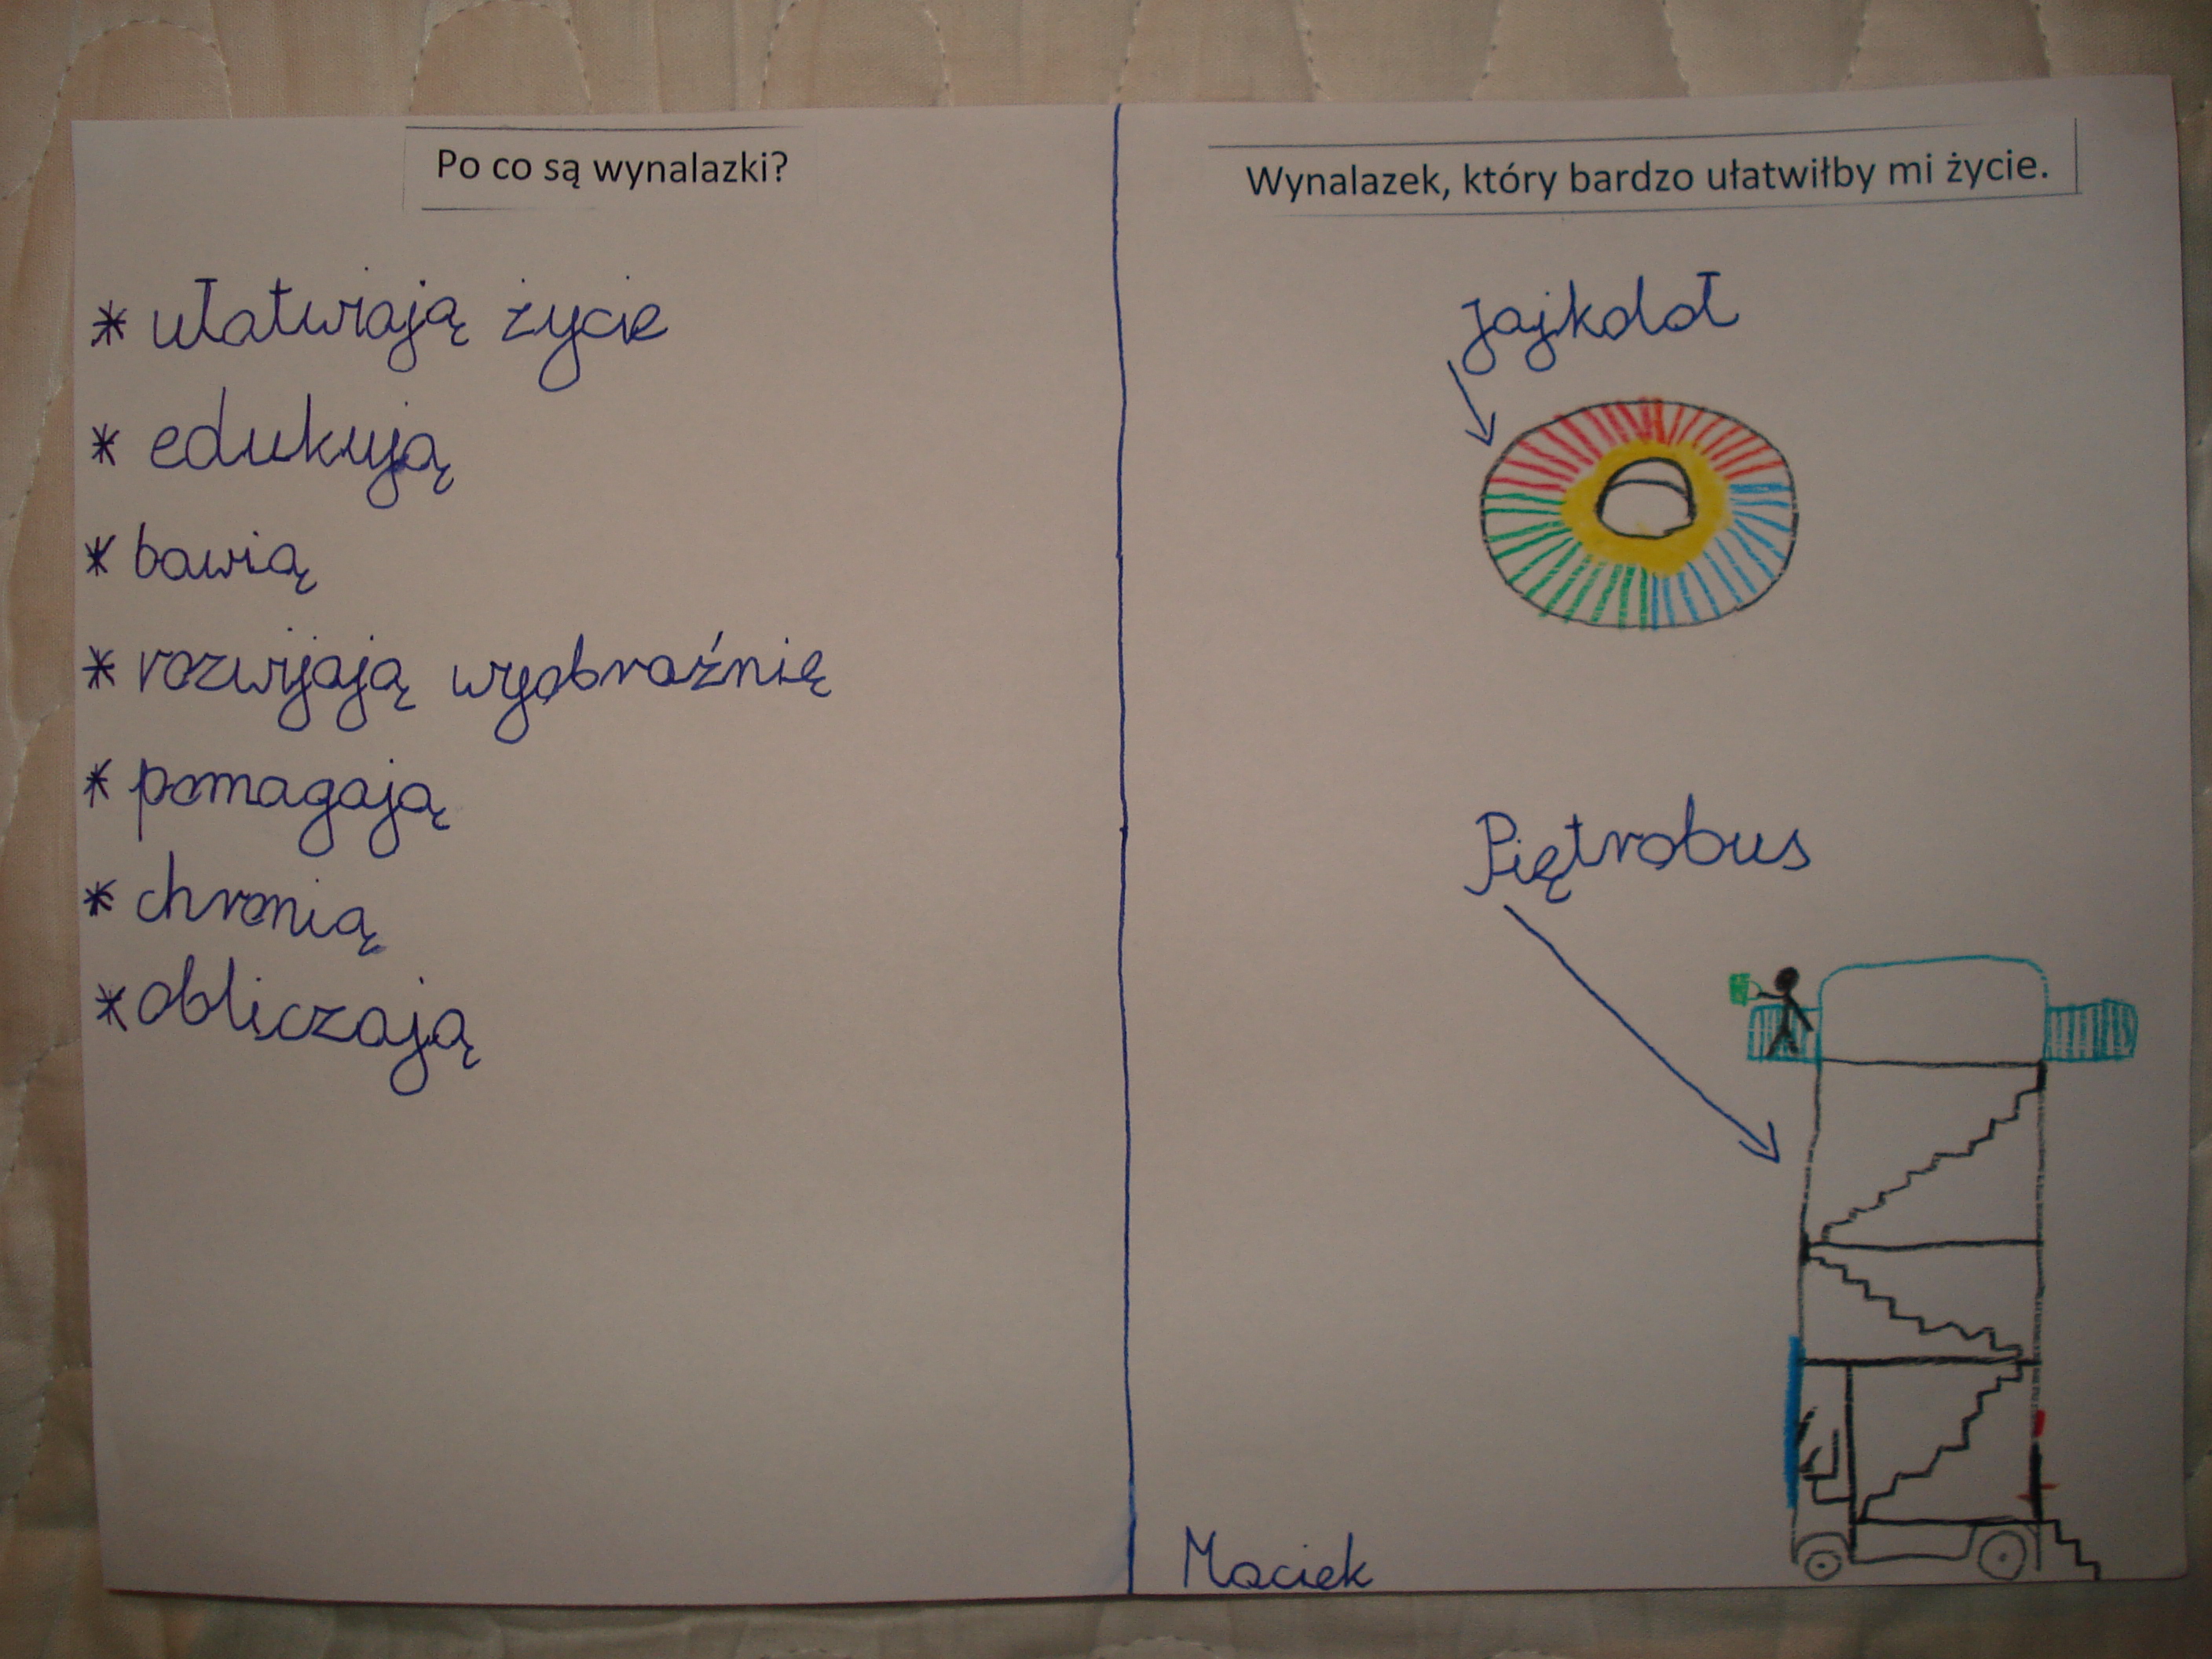 Po co są wynalazki?
* ułatwiają życie
* edukują
* bawią
* rozwijają wyobraźnię
* pomagają
* chronią
* obliczają
Wynalazek, który bardzo ułatwiłby mi życie.
Jajkolot
Piętrobus
Maciek